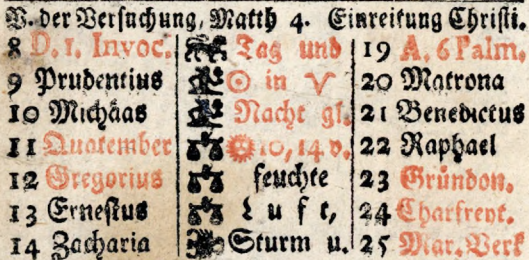 V. der Versuchung, Matth 4. Einreitung Christi.
8 D. 1. Invoc. Tag und 19 A. 6 Palm.
9 Prudentius ☉ in ♈ 20 Matrona
10 Michäas Nacht gl. 21 Benedictus
11 Quatember 10, 14 v. 22 Raphael
12 Gregorius feuchte 23 Gründon.
13 Ernestus Luft, 24 Charfreyt.
14 Zacharia Sturm u. 25 Mar. Verk